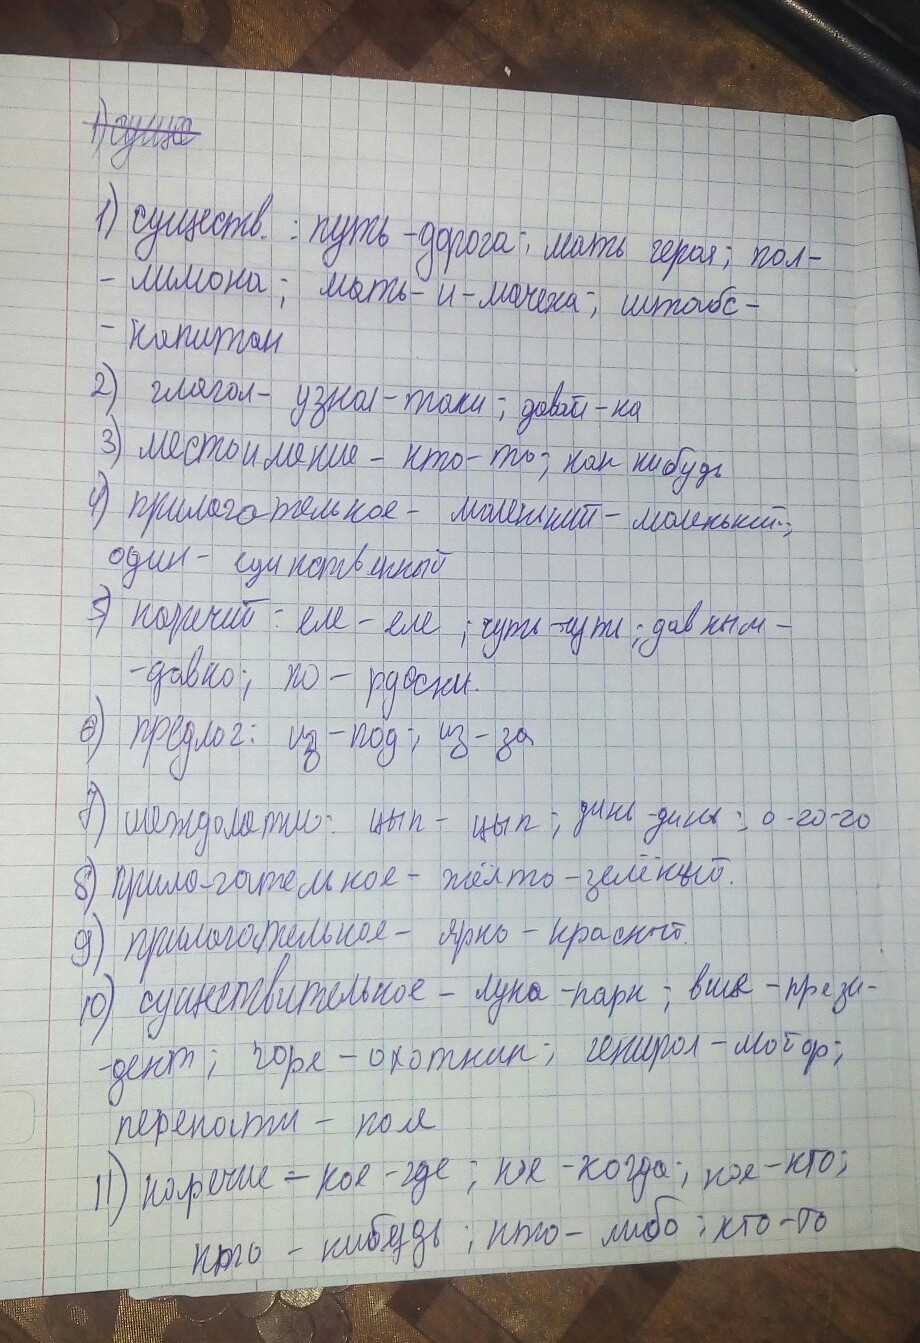 1) существ. : путь-дорога; мать героя; пол-
- лимона; мать-и-мачеха; штабс-
- капитан
2) глагол- узнал-таки; давай-ка
3) местоимение - кто-то; как нибудь
4) прилагательное - маленький-маленький;
один- единственный
5) наречий : еле-еле; чуть-чуть; давным-
-давно; по-
6) предлог: из-под; из-за
7) цып- цып; динь-динь; о-го-го
8) прилагательное - жёлто-зелёный.
9) прилагательное- ярко-красный.
10) существительное - луна-парк; вице-прези-
-дент; горе-охотник; генерал-майор;
- поле
11) наречие - кое-где; кое-когда; кое-кто;
кто - нибудь; кто- либо; кто-то